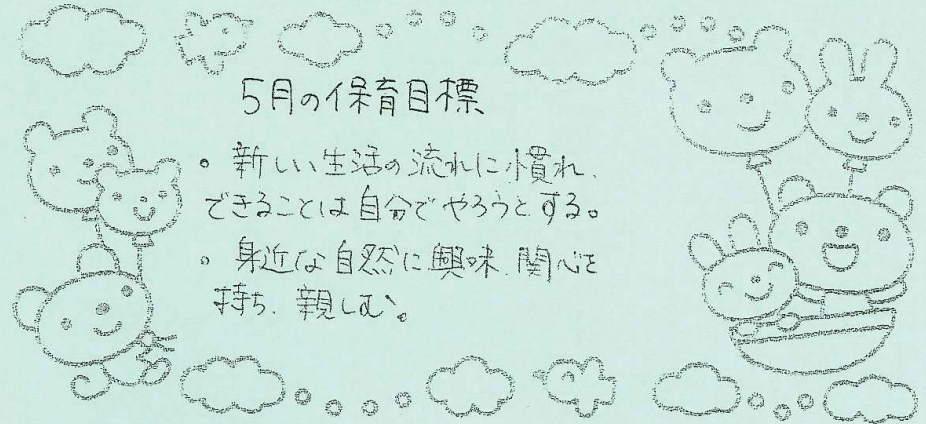 5月の保育目標
。新しい生活の流れに慣れ、
できることは自分でやろうとする。
。身近な自然に興味、関心を
持ち、親しむ。